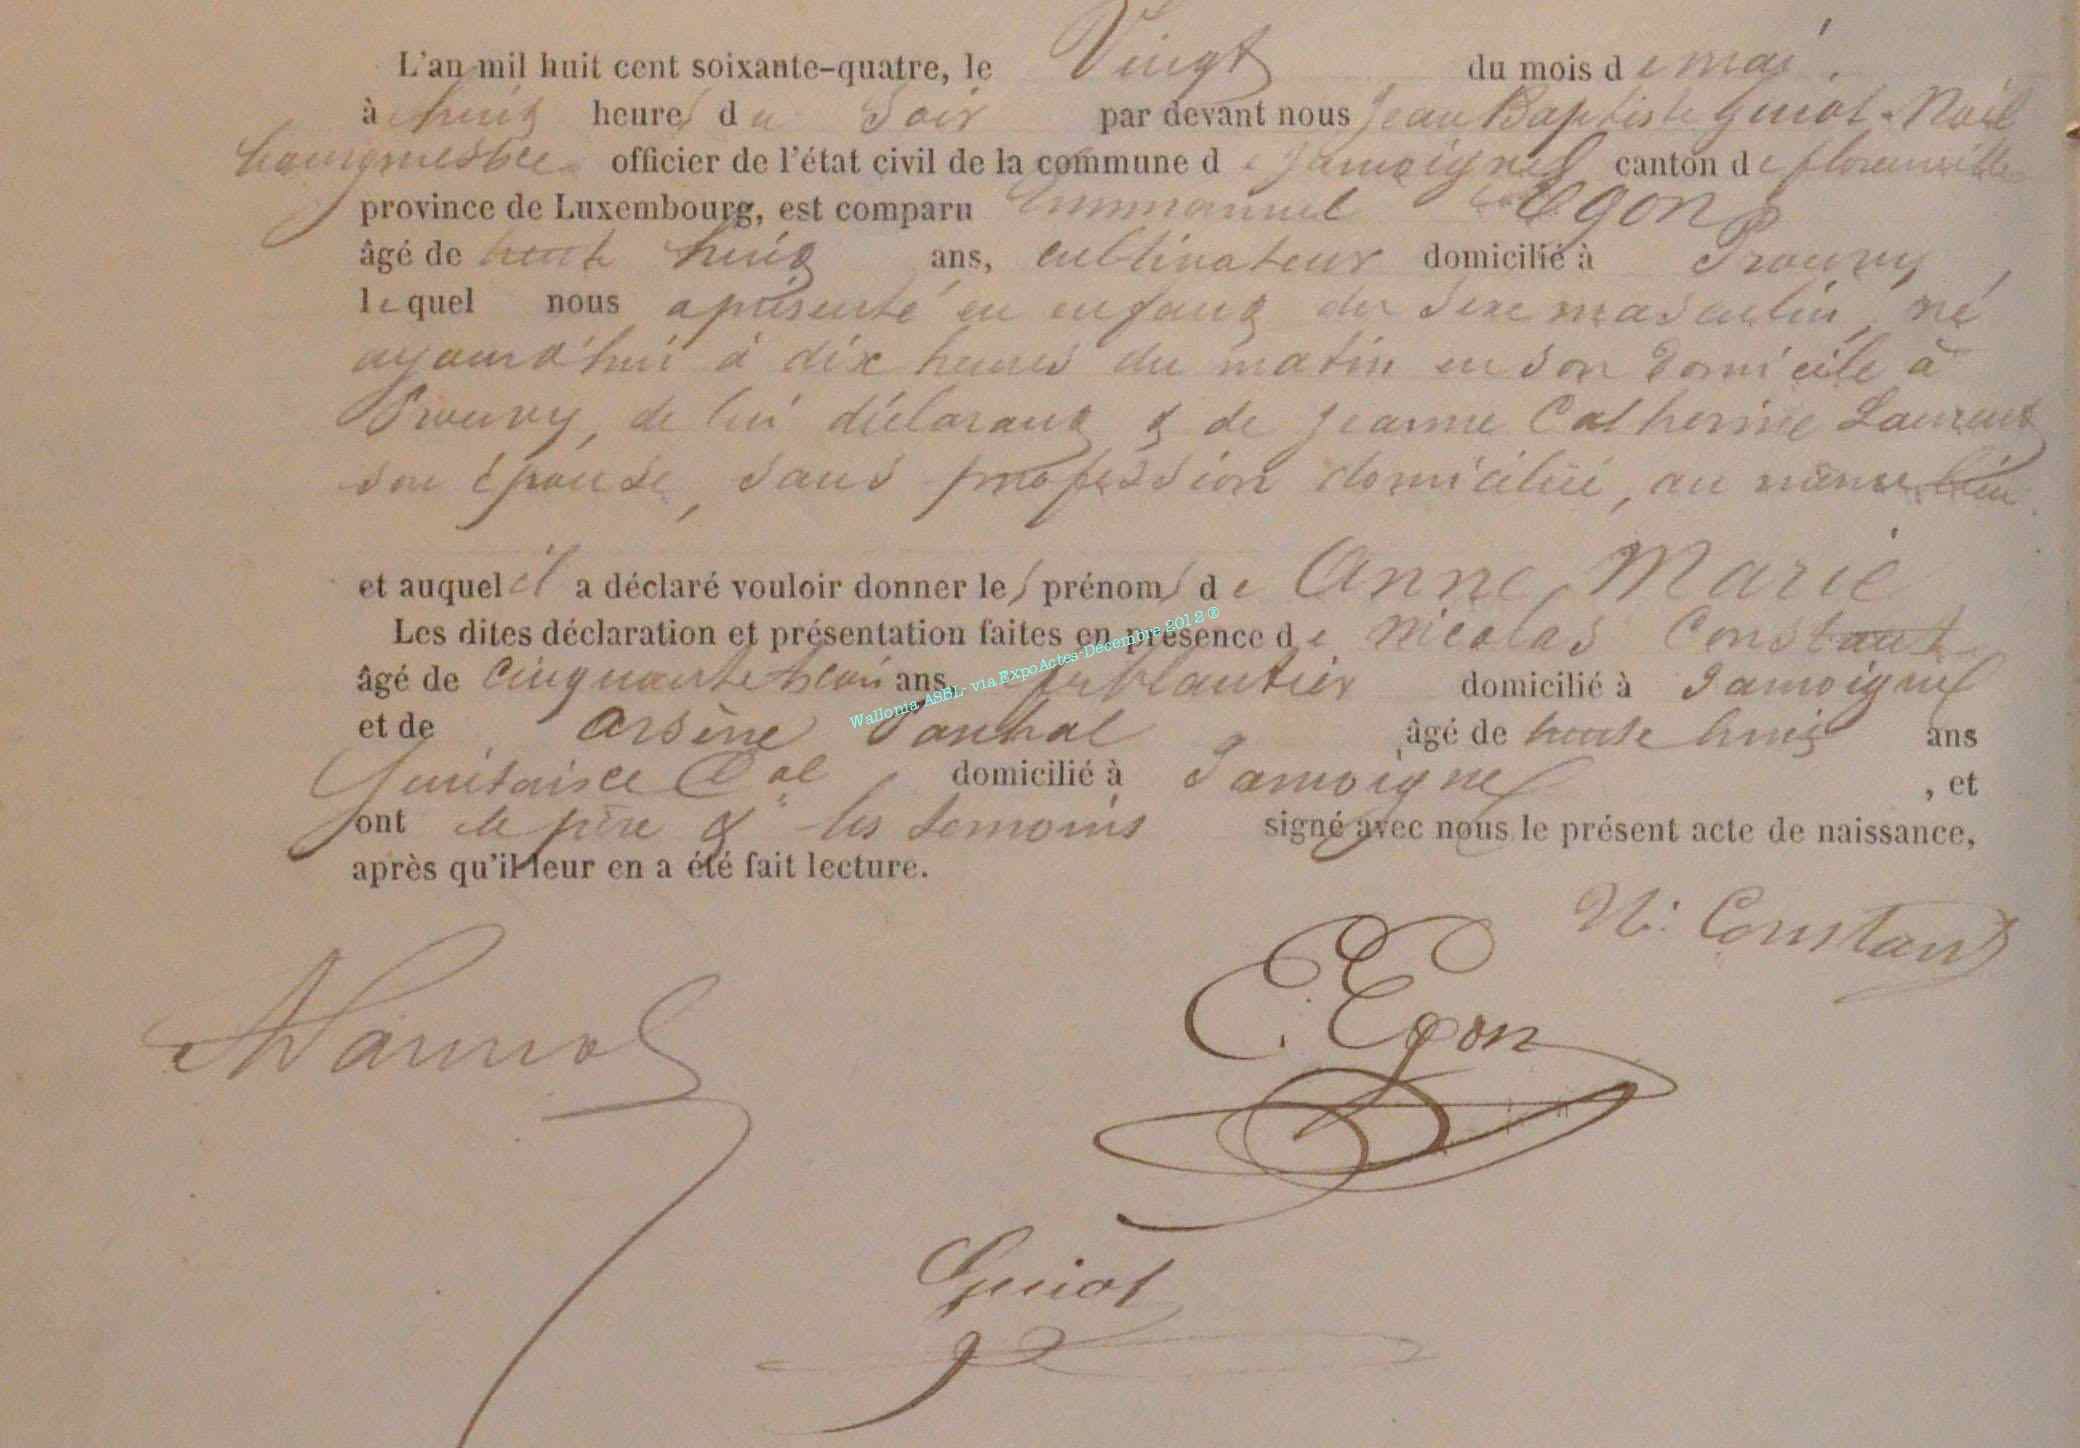 L'an mil huit cent soixante-quatre, le Vingt du mois de mai,
à huit heures du Soir par devant nous Jean Baptiste Guiot-Noël
bourgmestre officier de l'état civil de la commune de Jamoignes canton de florenville
province de Luxembourg, est comparu Emmanuel Egon
âgé de trente huit ans, cultivateur domicilié à Prouvy,
lequel nous a présenté un enfant du sexe masculin, né
aujourd'hui à dix heures du matin en son domicile à
Prouvy, de lui déclarant & de Jeanne Catherine Laurent
son épouse, sans profession domiciliée, au même lieu
et auquel il a déclaré vouloir donner les prénoms de Anne Marie
Les dites déclaration et présentation faites en présence de Nicolas Constant
âgé de Cinquante trois ans, ferblantier domicilié à Jamoignes
et de Arsène âgé de trente huit ans
domicilié à Jamoignes, et
ont le père & les temoins signé avec nous le présent acte de naissance,
après qu'il leur en a été fait lecture.
Wallonia ASBL- via ExpoActes-Décembre 2012 ®
N: Constant
E. Egon
Guiot